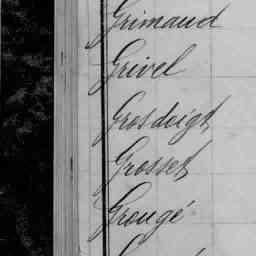 Grimaud
Grivel
Grosdoigt
Grosset
Grougé